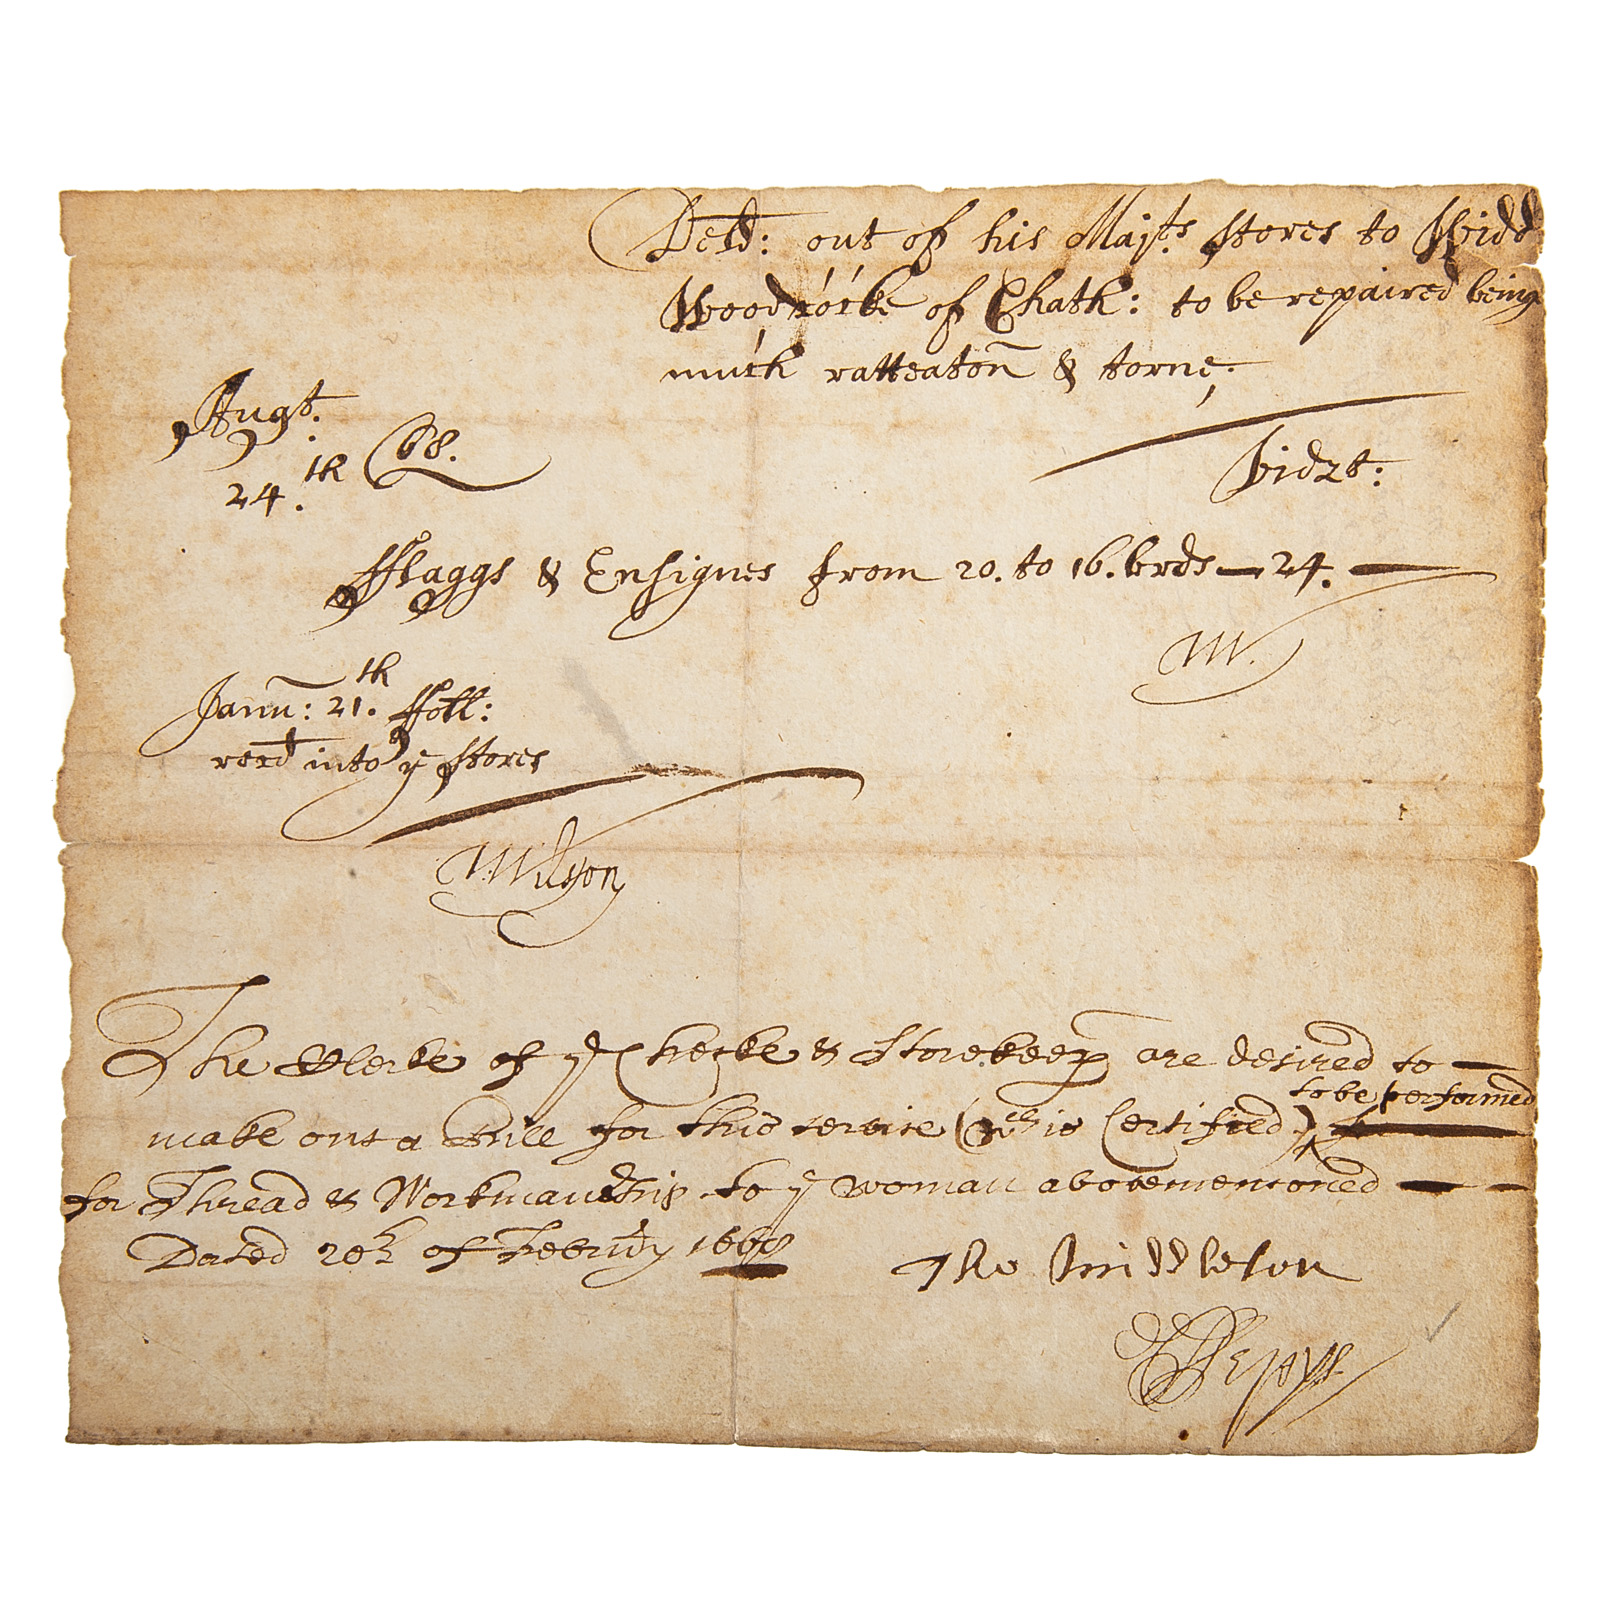 Deld: out of his Majts. stores to Widd
Woodrócke of Chath: to be repaired being
much ratteaton & torne;
Augt.
24.th 68.
Vidzt:
fflaggs & Ensignes from 20. to 16. brds — 24. —
W.
Janu: 21.th ffoll:
recd into ye stores
Wilson
The Clerke of ye Checke & Storekeepr are desired to —
to be performed
make out a Bill for this service (wch is Certified)
for Thread & Workmanship to ye woman abovementioned —
Dated 20th of Febru̅y 1668
Tho Middleton
SPepys